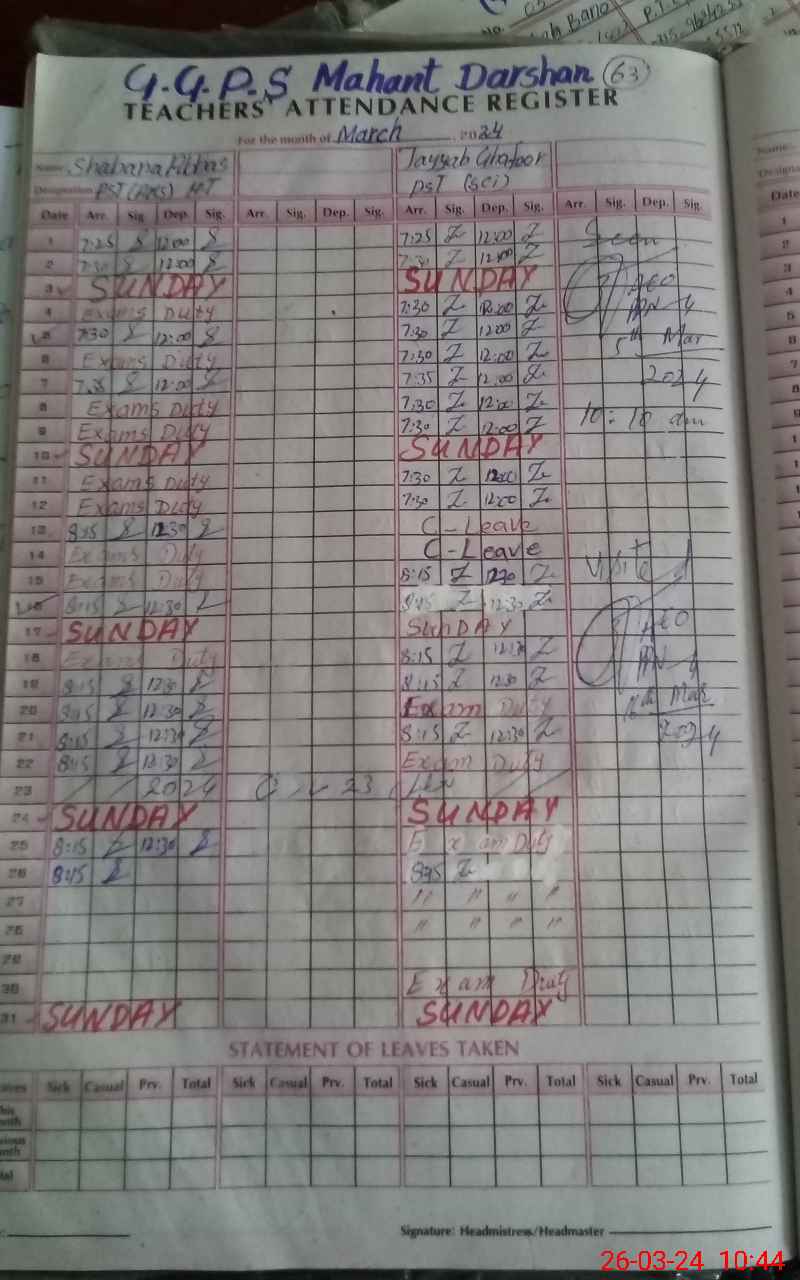 G.G.P.S Mahant Darshan 63
TEACHERS' ATTENDANCE REGISTER
For the month of March 2024
Name Shabana Abbas Tayyab Ghafoor
Designation PST (ARS) HT PST (Sci)
Date Arr. Sig. Dep. Sig. Arr. Sig. Dep. Sig. Arr. Sig. Dep. Sig. Arr. Sig. Dep. Sig.
1 7:25 12:00 7:25 Z 12:00 Z Seen
2 7:30 12:00 7:30 Z 12:00 Z
3 SUNDAY SUNDAY AEO
4 Exams Duty 7:30 Z 12:00 Z
5 7:30 12:00 7:30 Z 12:00 Z 5th Mar
6 Exams Duty 7:30 Z 12:00 Z
7 7:35 12:00 7:35 Z 12:00 Z 2024
8 Exams Duty 7:30 Z 12:00 Z
9 Exams Duty 7:30 Z 12:00 Z 10:10 am
10 SUNDAY SUNDAY
11 Exams Duty 7:30 Z 12:00 Z
12 Exams Duty 7:30 Z 12:00 Z
13 8:15 12:30 C-Leave
14 Exams Duty C-Leave
15 Exams Duty 8:15 Z 12:30 Z Visited
16 8:15 12:30 8:15 Z 12:30 Z
17 SUNDAY SUNDAY AEO
18 Exams Duty 8:15 Z 12:30 Z
19 8:15 12:30 8:15 Z 12:30 Z
20 8:15 12:30 Exam Duty 16th Mar
21 8:15 12:30 8:15 Z 12:30 Z 2024
22 8:15 12:30 Exam Duty
23 2024 23
24 SUNDAY SUNDAY
25 8:15 12:30 Exam Duty
26 8:15 8:15 Z
27 " " " "
28 " " " "
29
30 Exam Duty
31 SUNDAY SUNDAY
STATEMENT OF LEAVES TAKEN
Sick Casual Prv. Total Sick Casual Prv. Total Sick Casual Prv. Total Sick Casual Prv. Total
Signature: Headmistress/Headmaster
26-03-24 10:44